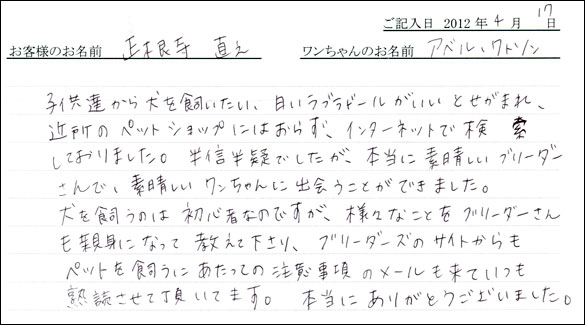 ご記入日 2012年4月17日
お客様のお名前 正木良寺 直え ワンちゃんのお名前 アベル、ワトソン
子供達から犬を飼いたい、白いラブラドールがいいとせがまれ、
近所のペットショップにはおらず、インターネットで検索
しておりました。半信半疑でしたが、本当に素晴しいブリーダー
さんで、素晴しいワンちゃんに出会うことができました。
犬を飼うのは初心者なのですが、様々なことをブリーダーさん
も親身になって教えて下さり、ブリーダーズのサイトからも
ペットを飼うにあたっての注意事項のメールも来ていつも
熟読させて頂いてます。 本当にありがとうございました。